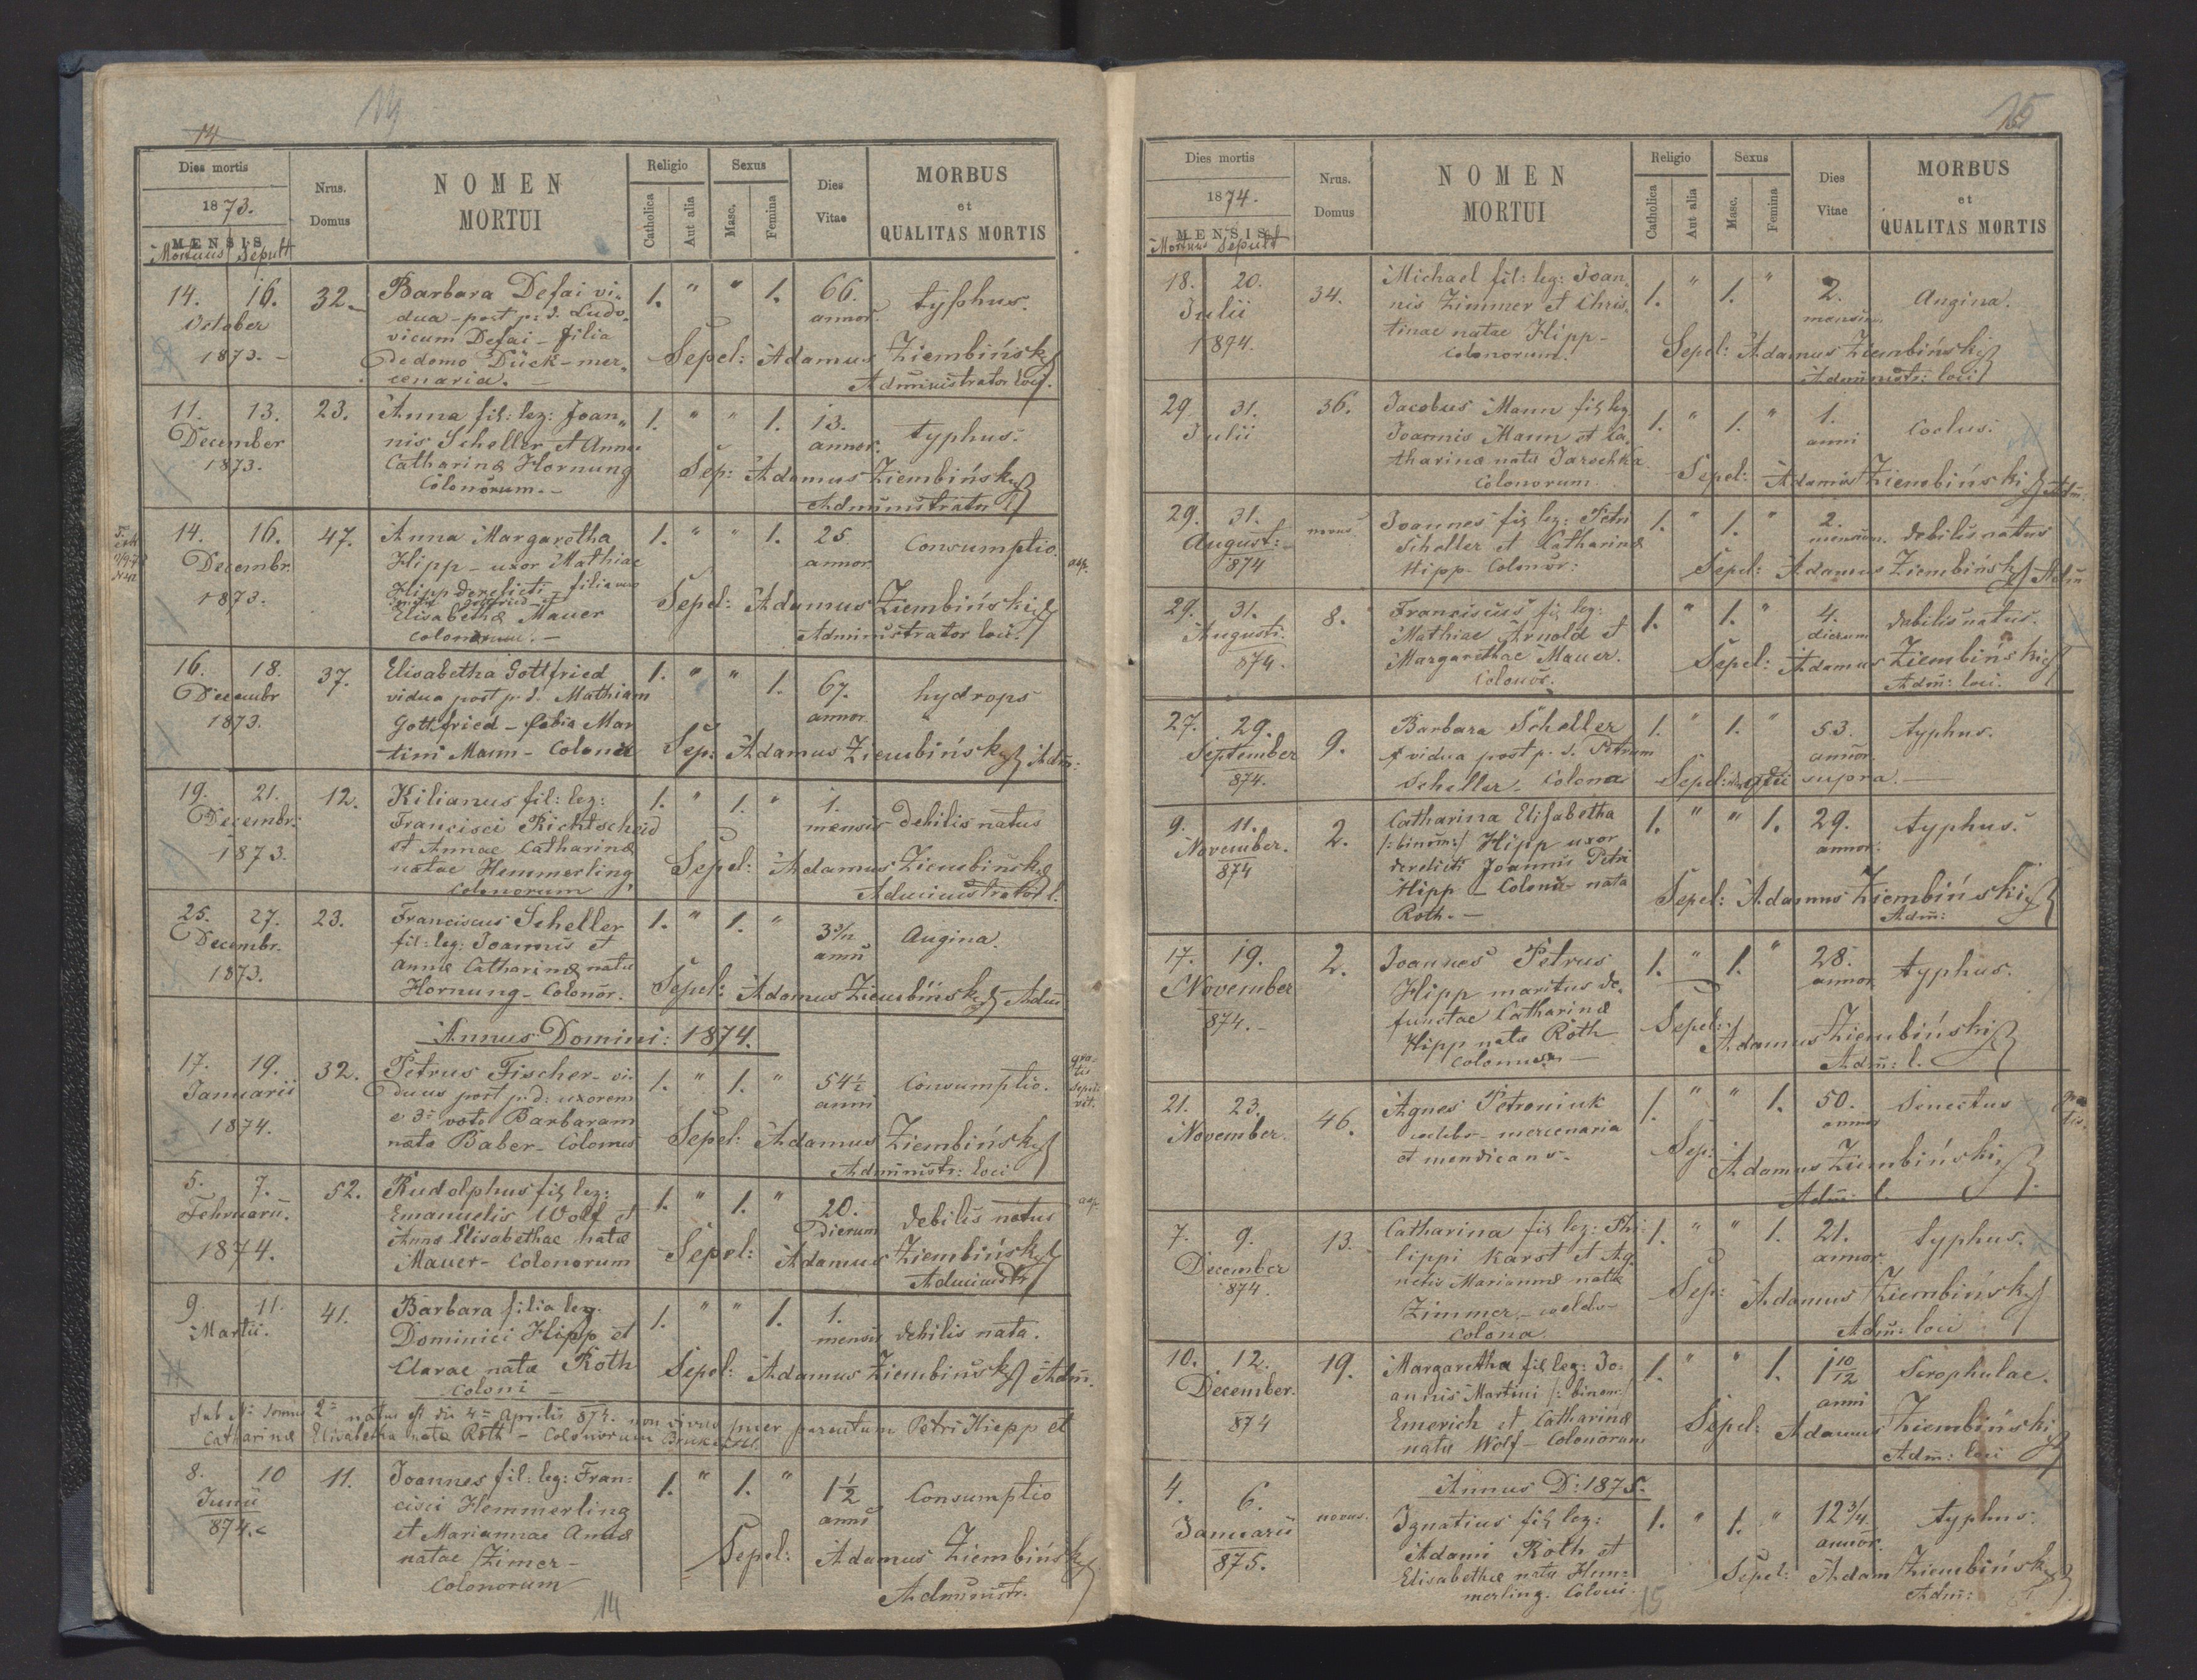 14
14
Dies mortis
1873.
MENSIS
Mortuus Sepult
Nrus.
Domus
NOMEN
MORTUI
Religio
Catholica
Aut alia
Sexus
Masc.
Femina
Dies
Vitae
MORBUS
et
QUALITAS MORTIS
14. 16. 32. Barbara Defai vi- 1. " " 1. 66. typhus.
October dua post p. d. Ludo- annor.
1873. vicum Defai - filia
de domo Dück - mer- Sepel: Adamus Ziembiński
cenaria. Administrator loci.
11. 13. 23. Anna fil: leg: Joan- 1. " " 1. 13. typhus.
December nis Scheller et Annae annor.
1873. Catharinæ Hornung Sep: Adamus Ziembiński
Colonorum. Administrator
14. 16. 47. Anna Margaretha 1. " " 1. 25. Consumptio.
Decembr. Hipp - uxor Mathiae annor.
1873. Hipp derelicti - filia
Elisabethæ Mauer Sepel: Adamus Ziembiński
colonorum. Administrator loci.
16. 18. 37. Elisabetha Gottfried 1. " " 1. 67. hydrops
Decembr vidua post p. d. Mathiam annor.
1873. Gottfried - Mar
tini Mann - Colona Sep: Adamus Ziembiński Adm:
19. 21. 12. Kilianus fil: leg: 1. " 1. " 1. debilis natus
Decembr: Francisci Richtscheid mensis
1873. et Annae Catharinæ
natae Hemmerling Sepel: Adamus Ziembiński
Colonorum Administrator l.
25. 27. 23. Franciscus Scheller 1. " 1. " 3 3/12 Angina.
Decembr. fil: leg: Joannis et anni
1873. Annæ Catharinæ natæ
Hornung - Colonor. Sepel: Adamus Ziembiński Adm
Annus Domini: 1874.
17. 19. 32. Petrus Fischer - vi- 1. " 1. " 54 1/2 Consumptio. gra-
tis
sepeli
vit.
Januarii duus post p. d: uxorem anni
1874. e 3o voto Barbaram
nata Baber - Colonus Sepel: Adamus Ziembiński
Administr: loci
5. 7. 52. Rudolphus fil leg: 1. " 1. " 20. debilis natus
Februarii. Emanuelis Wolf et Dierum
1874. Annæ Elisabethae natæ
Mauer - Colonorum Sepel: Adamus Ziembiński
Administr
9. 11. 41. Barbara filia leg. 1. " " 1. 1. debilis nata.
Martii. Dominici Hipp et mensis
Clarae natæ Roth Sepel: Adamus Ziembiński Adm.
Coloni
Sub No Domus 2 natus est die 4ta Aprilis 874. non vivus puer parentum Petri Hiepp et
Catharinæ Elisabetha nata Roth - Colonorum
8. 10 11. Joannes fil: leg: Fran- 1. " 1. " 1 1/2 Consumptio
Junii cisci Hemmerling anni
874. et Mariannae Annæ
natae Zimer - Sepel: Adamus Ziembiński
Colonorum Administr.
14
15
Dies mortis
1874.
MENSIS
Mortuus Sepult
Nrus.
Domus
NOMEN
MORTUI
Religio
Catholica
Aut alia
Sexus
Masc.
Femina
Dies
Vitae
MORBUS
et
QUALITAS MORTIS
18. 20. 34. Michael fil: leg: Joan- 1. " 1. " 2. Angina.
Julii nis Zimmer et Chris- mensium
1894. tinae natae Hipp -
Colonorum. Sepel: Adamus Ziembiński
Administr: loci
29. 31. 36. Jacobus Mann fil leg 1. " 1. " 1. Coclus.
Julii Joannis Mann et Ca- anni
tharinæ natæ Jarochka
Colonorum Sepel: Adamus Ziembiński Adm:
29. 31. novus Joannes fil leg: Petri 1. " 1. " 2. debilis natus
August: Scheller et Catharinæ mensium.
874 Hipp - Colonor: Sepel: Adamus Ziembiński Adm
29. 31. 8. Franciscus fil leg: 1. " 1. " 4. debilis natus.
Augusti. Mathiae Arnold et dierum
874. Margarethae Mauer. Sepel: Adamus Ziembiński
Colonor. Adm: loci.
27. 29. 9. Barbara Scheller 1. " 1. " 53. typhus.
September vidua post p. d. Petrum annor
874. Scheller - Colona Sepel: qui supra.
9. 11. 2. Catharina Elisabetha 1. " " 1. 29. typhus.
November. /:binom:/ Hipp uxor annor.
874 derelicti Joannis Petri
Hipp - Coloni - nata Sepel: Adamus Ziembiński
Roth. Adm:
17. 19. 2. Joannes Petrus 1. " 1. " 28. typhus.
November Hipp maritus de- annor
874. functae Catharinæ
Hipp natæ Roth Sepel: Adamus Ziembiński
Colonus Adm: l.
21. 23. 46. Agnes Petroniuk 1. " " 1. 50. Senectus gra
tis.
November. celebs - mercenaria annor
et mendicans. Sep: Adamus Ziembiński
Adm: l.
7. 9. 13. Catharina fil leg: Phi- 1. " " 1. 21. typhus.
December lippi Karst et Ag- annor.
874. netis Mariannæ natæ
Zimmer - celebs - Sep: Adamus Ziembiński
Colona. Adm: loci
10. 12. 19. Margaretha fil leg: Jo- 1. " " 1. 1 10/12 Scrophulae.
December. annis Martini /:binom:/ anni
874 Emerich et Catharinæ
natæ Wolf - Colonorum Sepel: Adamus Ziembiński
Adm: loci
Annus D: 1875.
4. 6. novus. Ignatius fil leg: 1. " 1. " 12 3/4 typhus.
Januarii Adami Roth et annor.
875. Elisabethæ natæ Hem-
merling. Coloni Sepel: Adam Ziembiński
Adm:
15